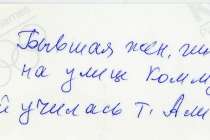 Бывшая жен. гим
на улице Комму
й училась т. Али